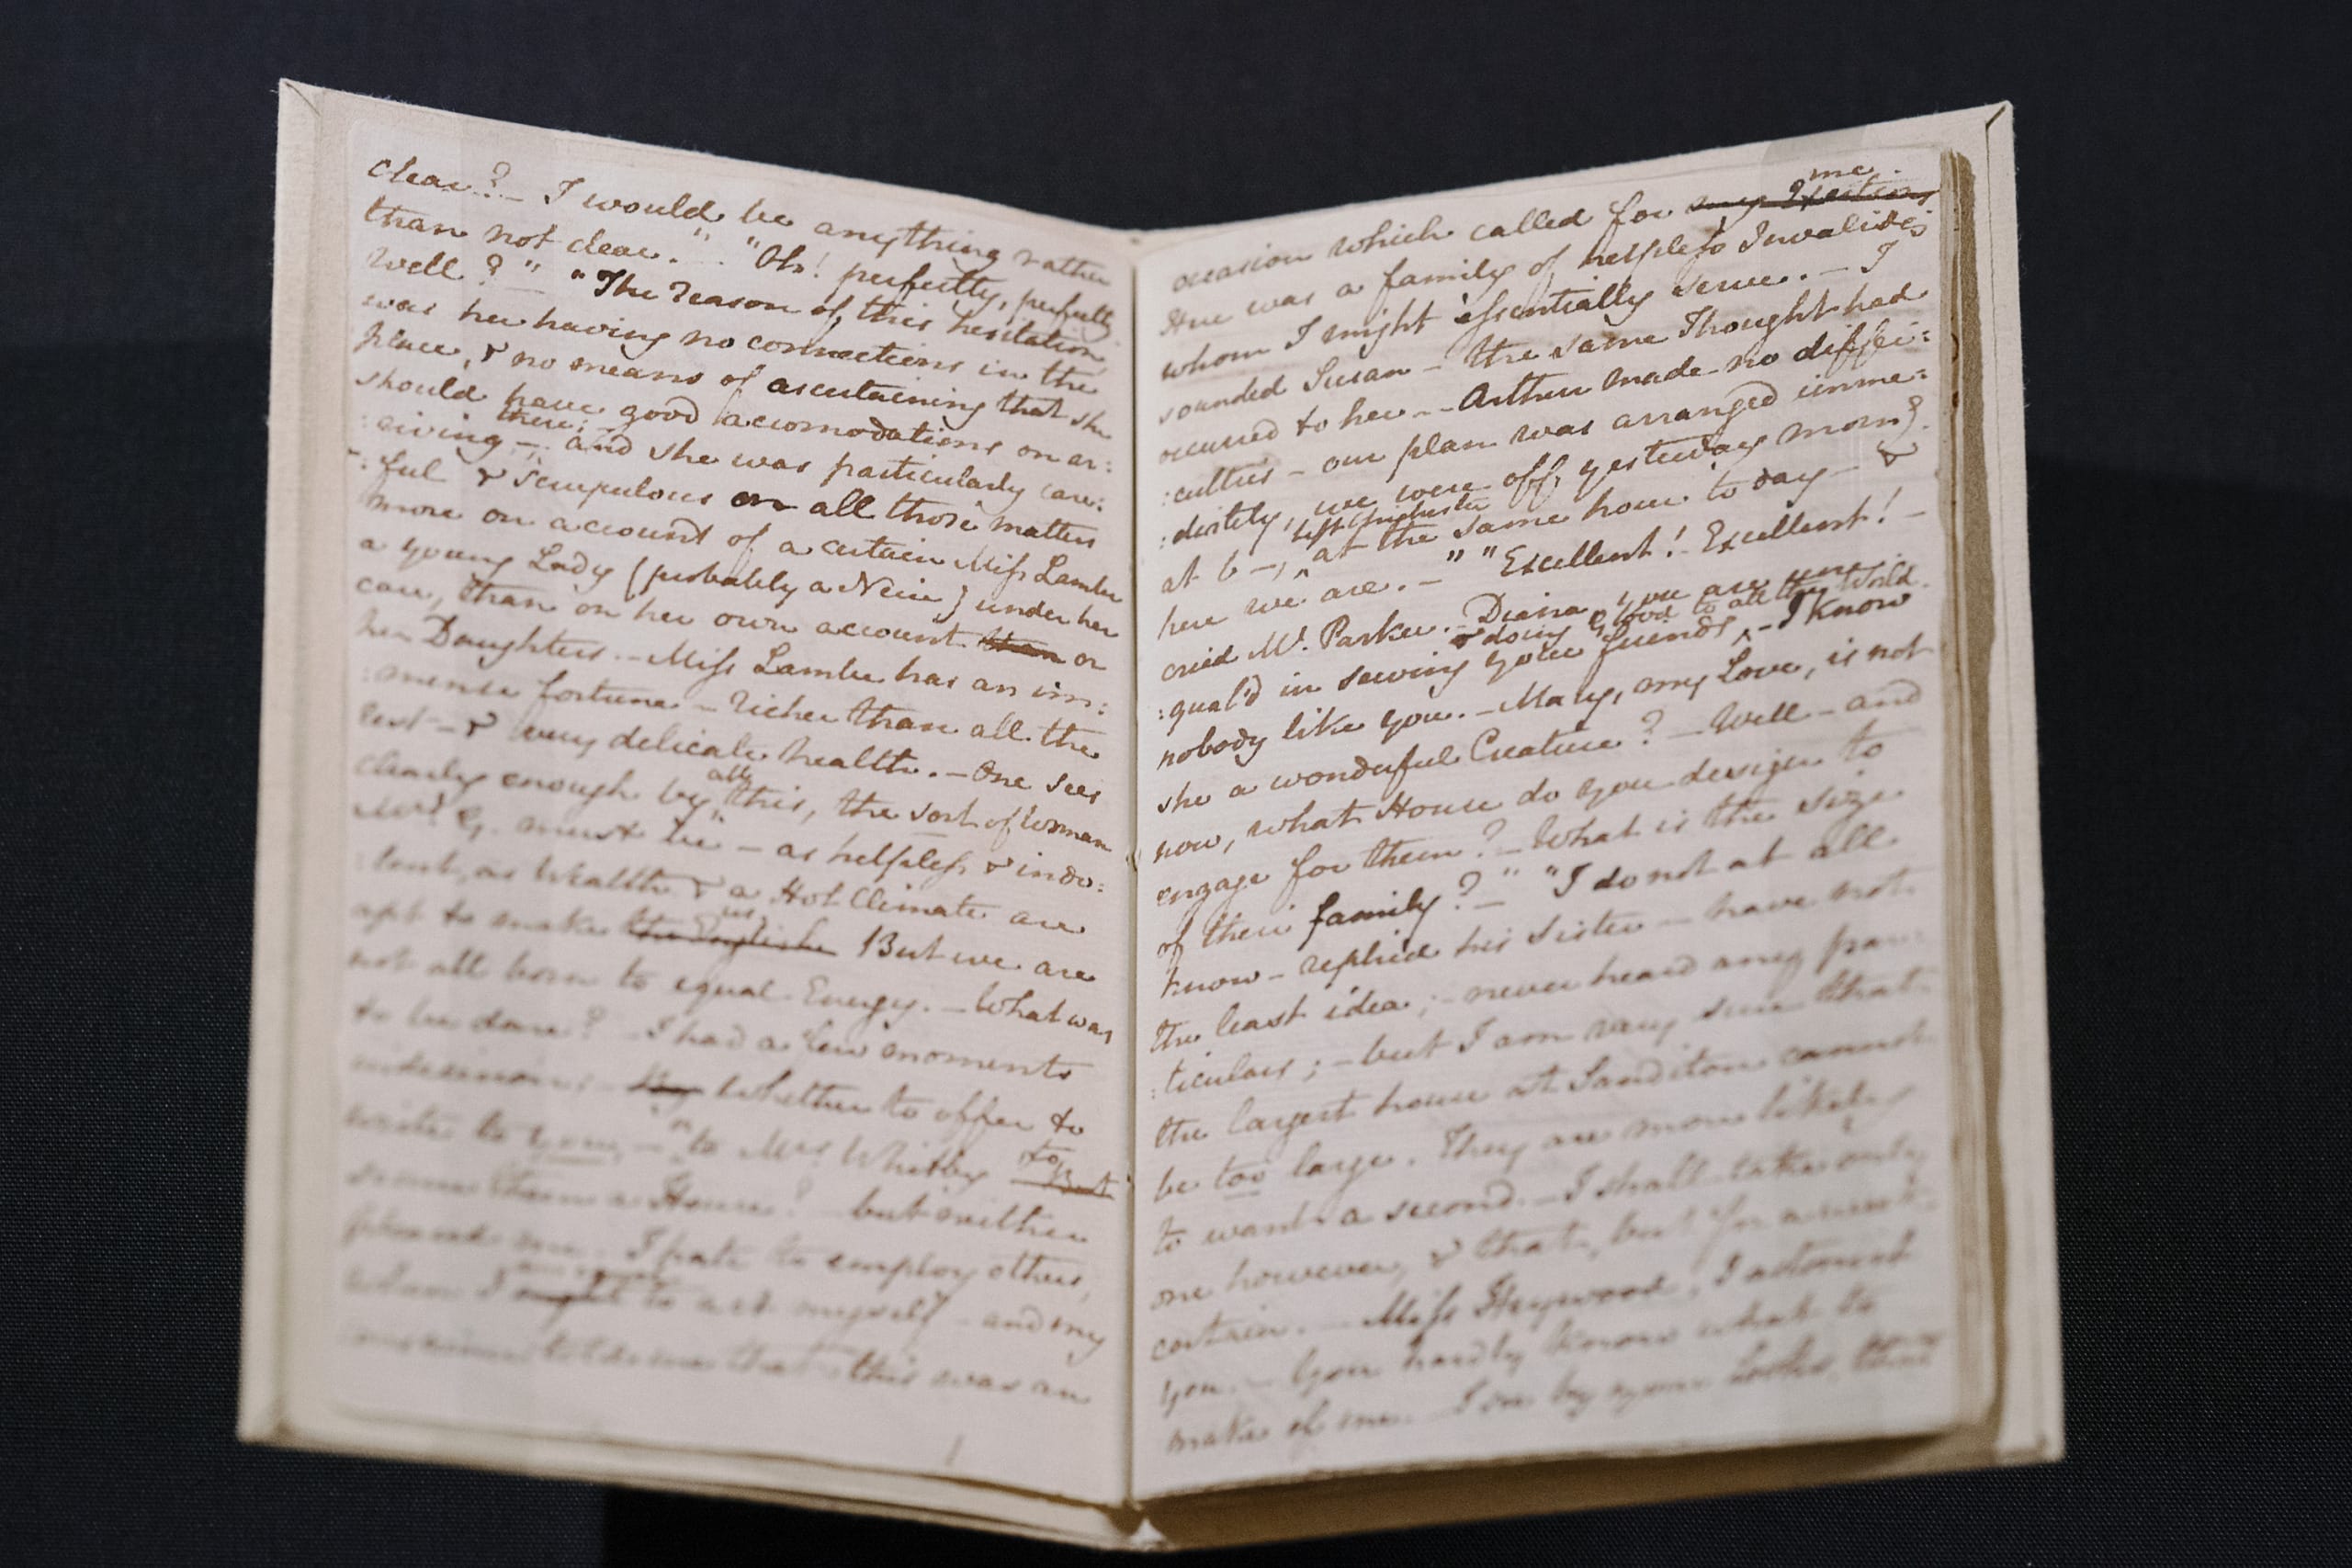 clear? — I would be anything rather
than not clear." — "Oh! perfectly, perfectly
well?" — "The reason of this hesitation
was her having no connections in the
place, & no means of ascertaining that she
should have good accomodations on ar:
there;
:riving — and she was particularly care:
:ful & scrupulous on all those matters
more on account of a certain Miss Lambe
a young Lady (probably a Neice) under her
care, than on her own account than or
her Daughters. — Miss Lambe has an im:
:mense fortune — richer than all the
rest — & very delicate health. — One sees
all
clearly enough by this, the sort of Woman
Mrs. G. must be — as helpless & indo:
:lent, as Wealth & a Hot Climate are
us.
apt to make the English But we are
not all born to equal Energy. — What was
to be done? — I had a few moments
indecision; — Whether to offer to
write to you, — or to Mrs. Whitby
to But
secure them a House? — but neither
pleased me. — I hate to employ others,
when I ought to act myself — and my
conscience told me that this was an
me.
occasion which called for my Exertions
Here was a family of helpless Invalides
whom I might essentially serve. — I
sounded Susan — the same Thought had
occurred to her. — Arthur made no diffi:
:culties — our plan was arranged imme:
:diately, we were off yesterday morng.
left Chichester
at 6 —, at the same hour to day — &
here we are. —" "Excellent! — Excellent! —
cried Mr. Parker. — Diana, you are une:
& doing Good to all the World.
:qual'd in serving your friends — I know
nobody like you. — Mary, my Love, is not
she a wonderful Creature? — Well — and
now, what House do you design to
engage for them? — What is the size
of their family? —" "I do not at all
know — replied his Sister — have not
the least idea; — never heard any par:
:ticulars; — but I am very sure that
the largest house at Sanditon cannot
be too large. They are more likely
to want a second. — I shall take only
one however, & that, but for a week
certain. — Miss Heywood, I astonish
you. — You hardly know what to
make of me. — I see by your Looks, that